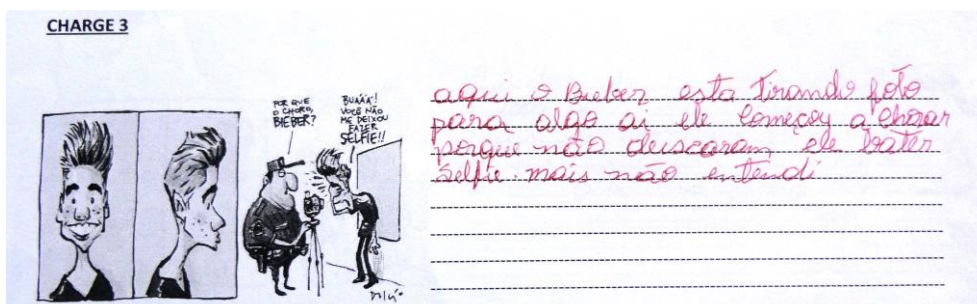 CHARGE 3
POR QUE
O CHORO,
BIEBER?
BUÁÁÁ!
VOCÊ NÃO
ME DEIXOU
FAZER
SELFIE!!
aqui o Bieber esta tirando foto
para algo ai ele começou a chorar
porque não deiscaram ele bater
selfie mais não entendi